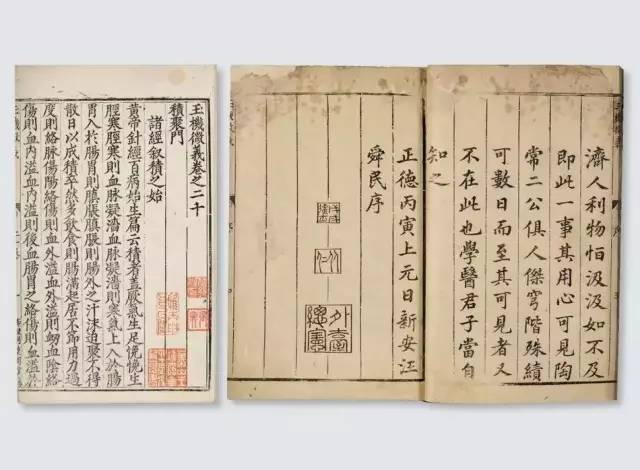 濟人利物怕汲汲如不及
即此一事其用心可見陶
常二公俱人傑穹階殊績
可數日而至其可見者又
不在此也學醫君子當自
知之
正德丙寅上元日新安汪
舜民序
外臺總憲
玉機微義卷之二十
積聚門
諸經叙積之始
黃帝針經百病始生篇云積者蓋厥氣生足悗悗生
脛寒脛寒則血脉凝濇血脉凝濇則寒氣上入於腸
胃入於腸胃則䐜脹䐜脹則腸外之汁沫迫聚不得
散日以成積卒然多飲食則腸滿起居不節用力過
度則絡脉傷陽絡傷則血外溢血外溢則衂血陰絡
傷則血內溢血內溢則後血腸胃之絡傷則血溢於